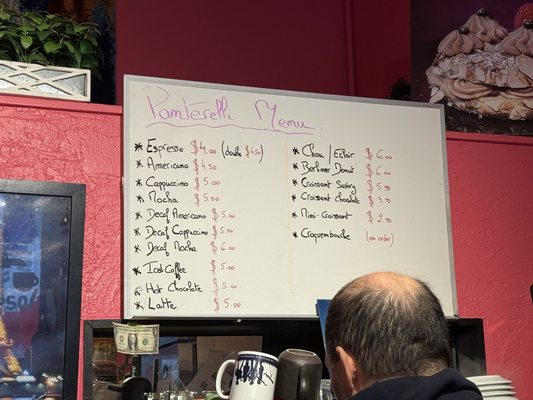 Pantèrelli Menu
* Espresso $4.00 (double $4.50)
* Americano $4.50
* Cappuccino $5.00
* Mocha $5.50
* Decaf Americano $5.00
* Decaf Cappuccino $5.50
* Decaf Mocha $6.00
* Iced Coffee $5.00
* Hot Chocolate $5.00
* Latte $5.00
* Chou / Eclair $6.00
* Berliner Donut $6.00
* Croissant Savory $5.99
* Croissant Chocolate $3.99
* Mini-Croissant $2.99
* Craquembouche (on order)